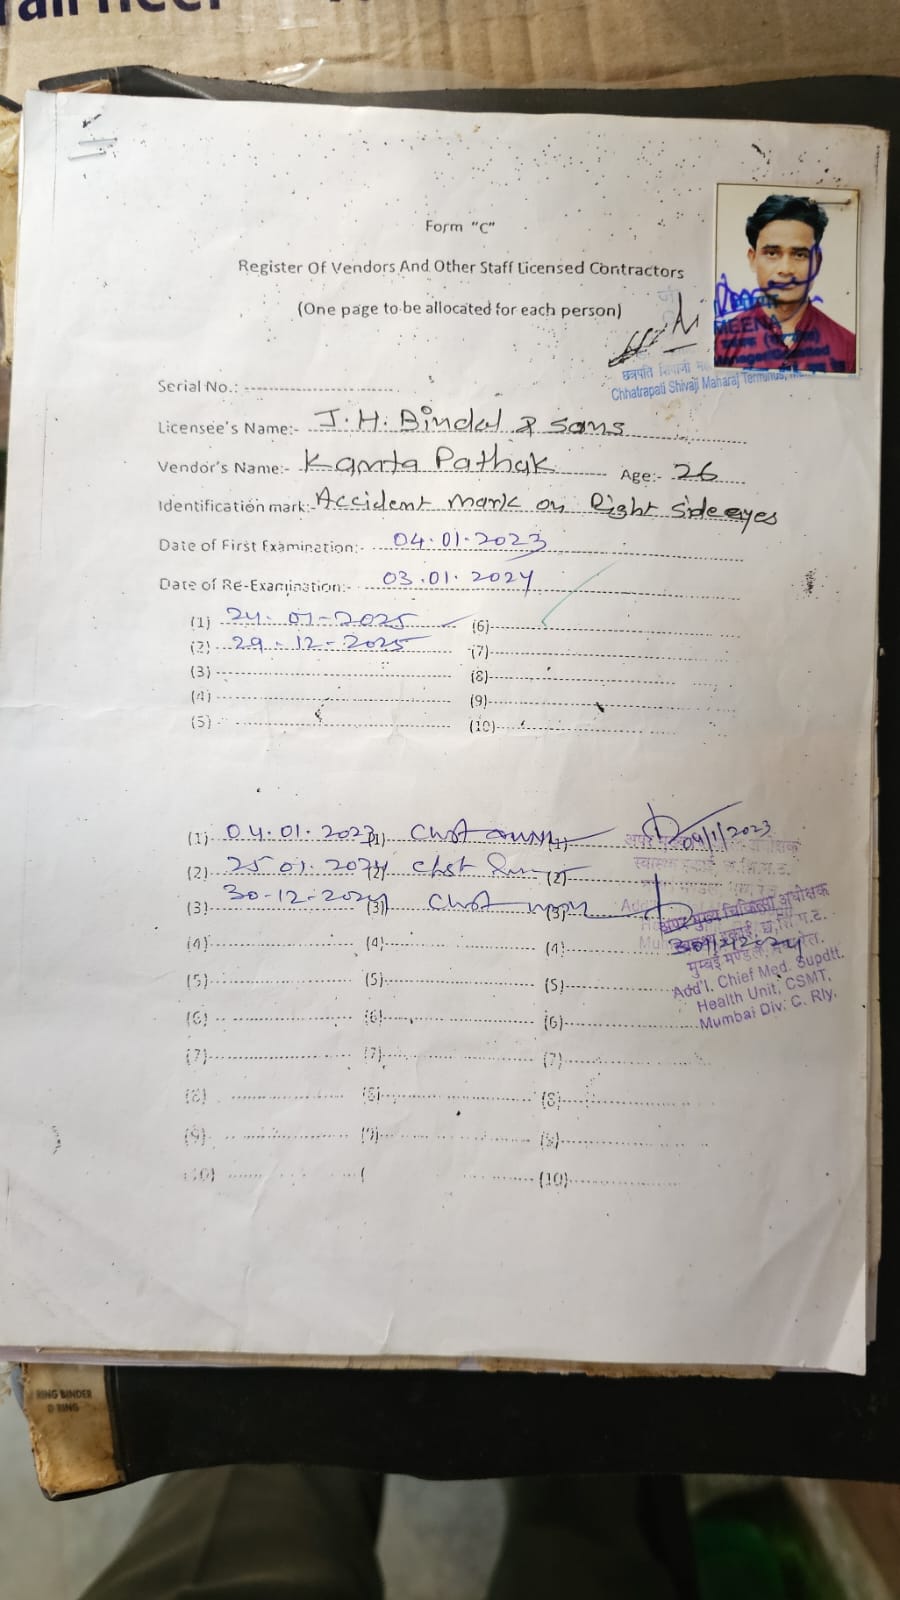 Form "C"
Register Of Vendors And Other Staff Licensed Contractors
(One page to be allocated for each person)
MEENA
छत्रपति शिवाजी
Chhatrapati Shivaji Maharaj Terminus,
Serial No.:
Licensee's Name:- J.H. Bindal & Sons
Vendor's Name:- Kamta Pathak Age:- 26
Identification mark:- Accident mark on Right Side eyes
Date of First Examination:- 04.01.2023
Date of Re-Examination:- 03.01.2024
(1) 24-01-2025 (6)
(2) 29-12-2025 (7)
(3) (8)
(4) (9)
(5) (10)
(1) 04.01.2023 (1) (1) 09/1/2023
(2) 25.01.2024 (2) (2)
(3) 30-12-2024 (3) (3)
अपर मुख्य चिकित्सा अधीक्षक
(4) (4) (4)
मुम्बई मण्डल,
(5) (5) (5) Add'l. Chief Med. Supdtt.
Health Unit, CSMT,
(6) (6) (6) Mumbai Div. C. Rly.
(7) (7) (7)
(8) (8) (8)
(9) (9) (9)
(10) ( (10)
RING BINDER
D RING